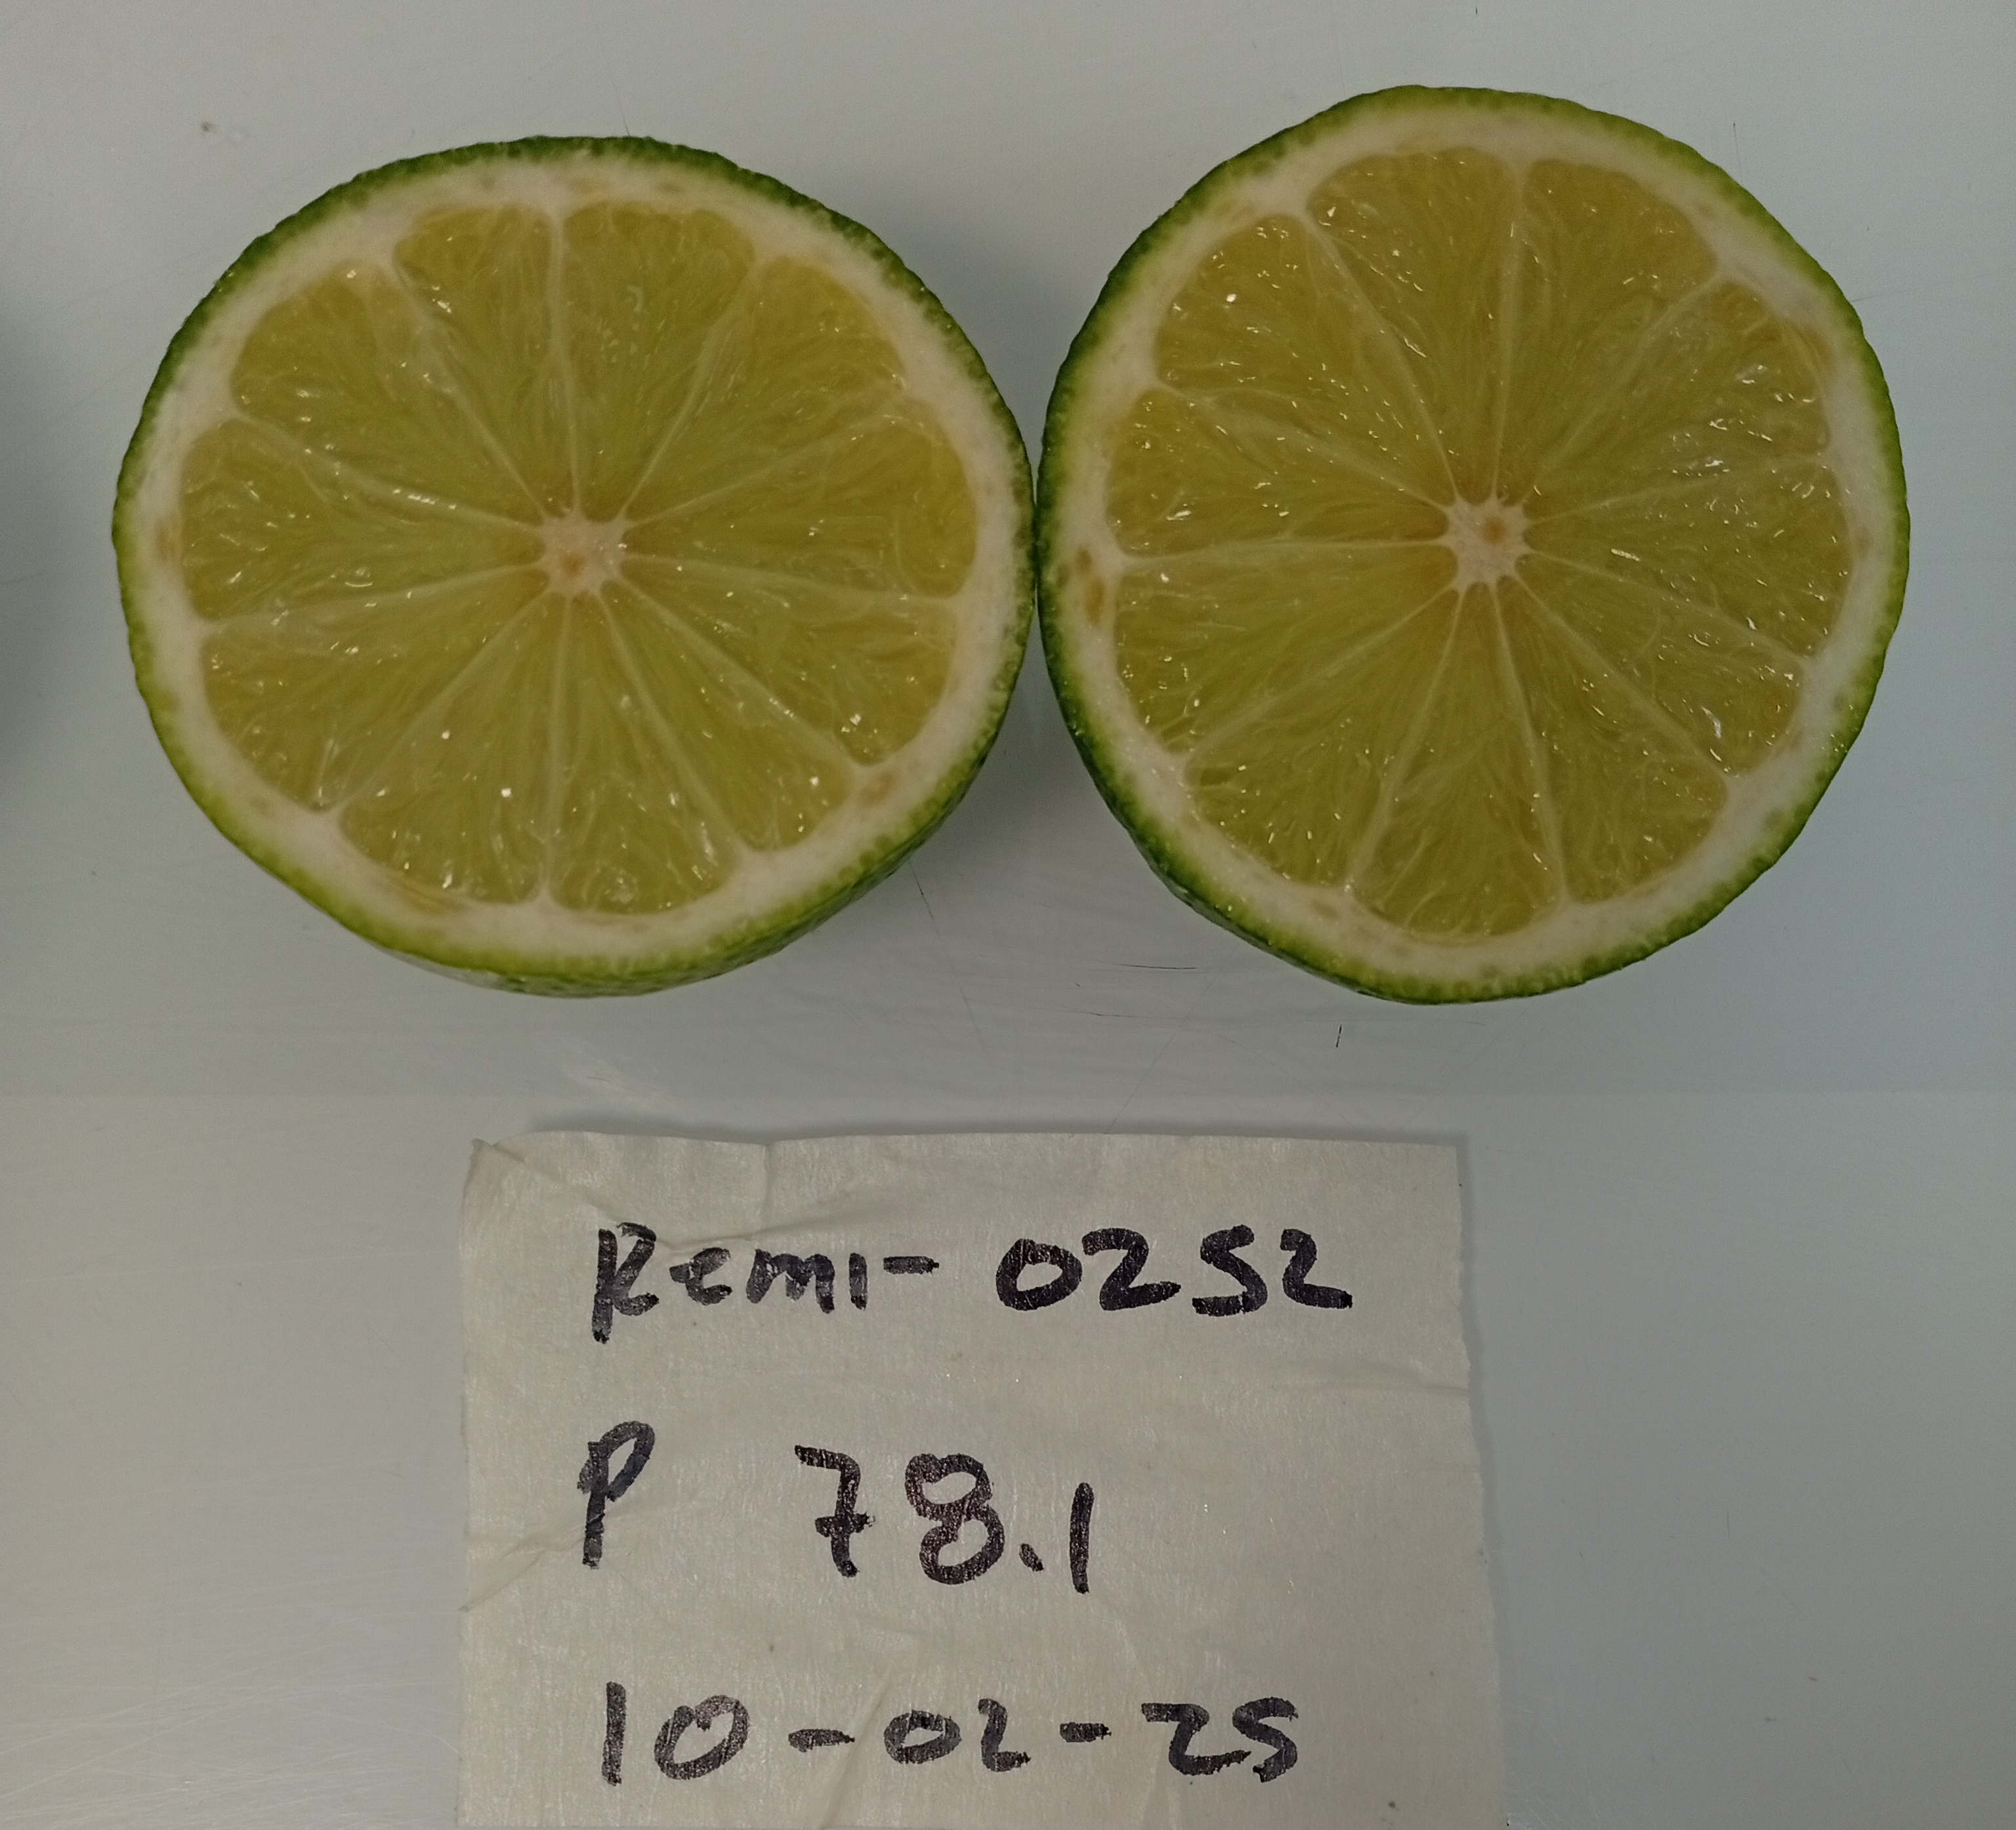 Remi- 0252
P 78.1
10-02-25